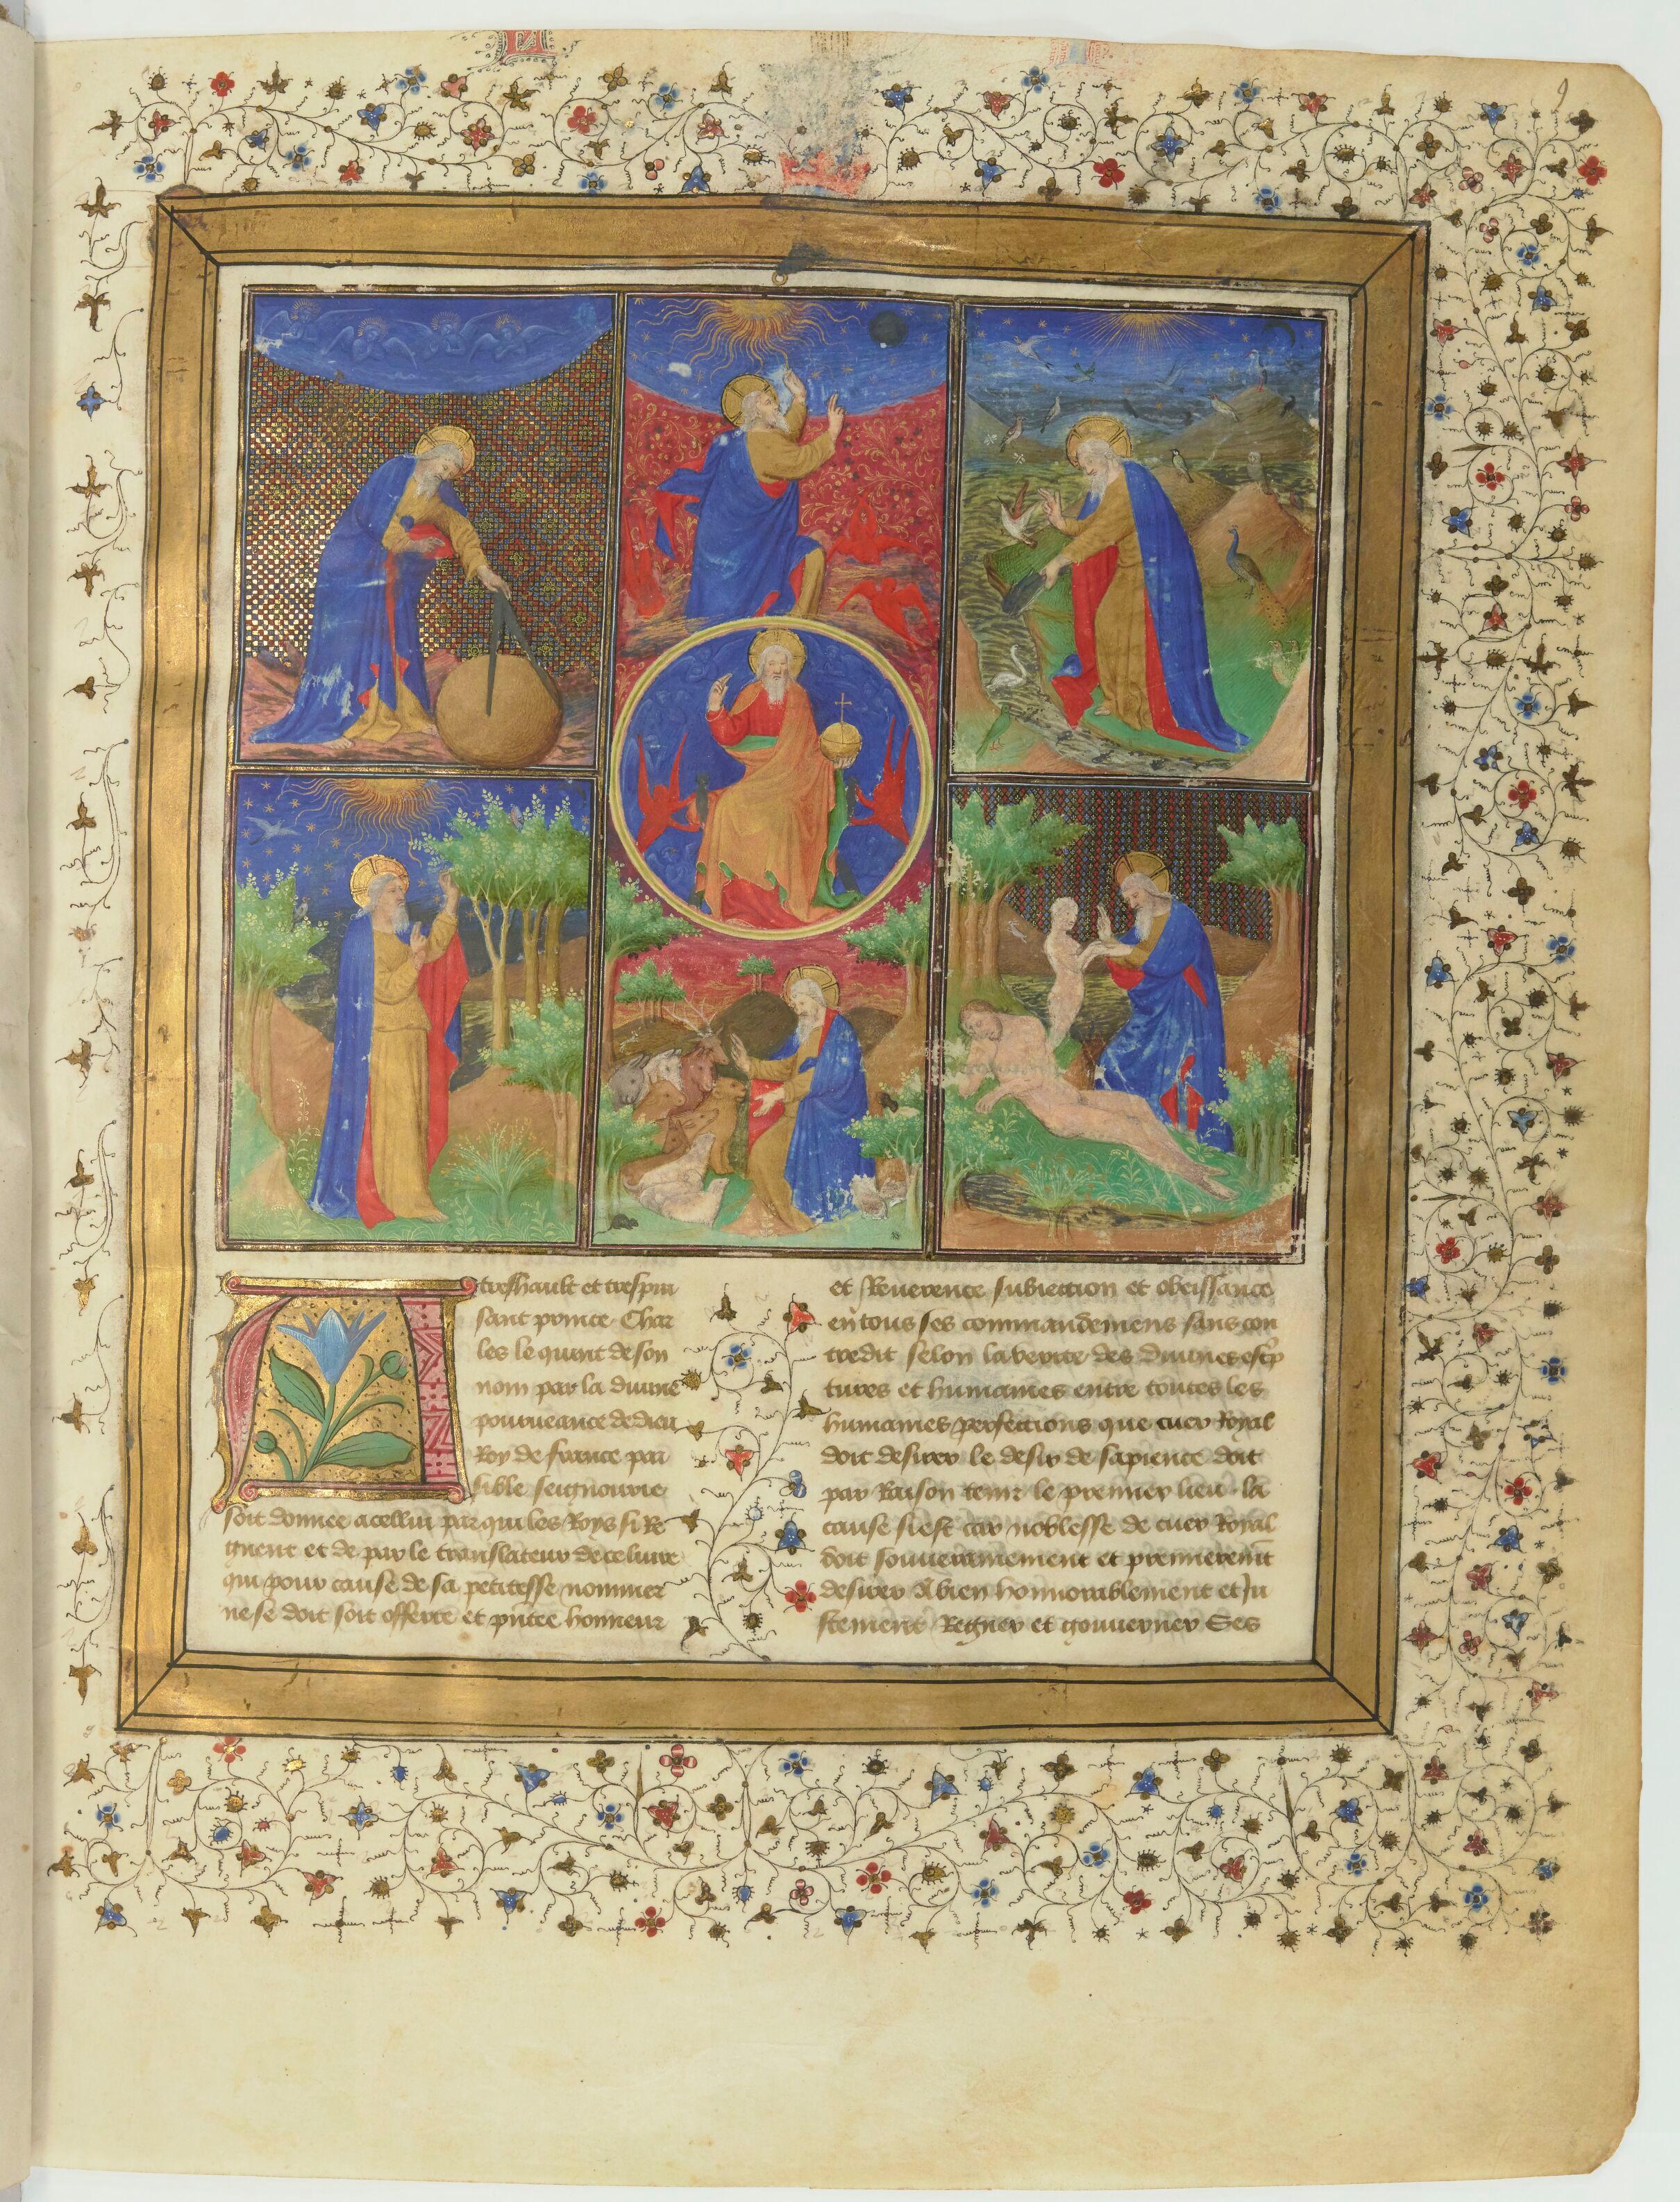 A treshault et trespui
sant prince Char
les le quint de son
nom par la diuine
pourueance de dieu
Roy de france pai
sible seignourie
soit donnee a cellui par qui les Roys si Re
gnent et de par le translateur de ce liure
qui pour cause de sa petitesse nommer
ne se doit soit offerte et pñtee honneur
et Reuerence subiection et obeissance
en tous ses commandemens sans con
tredit selon la verite des diuines escrip
tures et humaines entre toutes les
humaines perfections que cuer Royal
doit desirer le desir de sapience doit
par Raison tenir le premier lieu la
cause si est car noblesse de cuer Royal
doit souuerainement et premieremẽt
desirer A bien honnorablement et Ju
stement Regner et gouuerner Ses